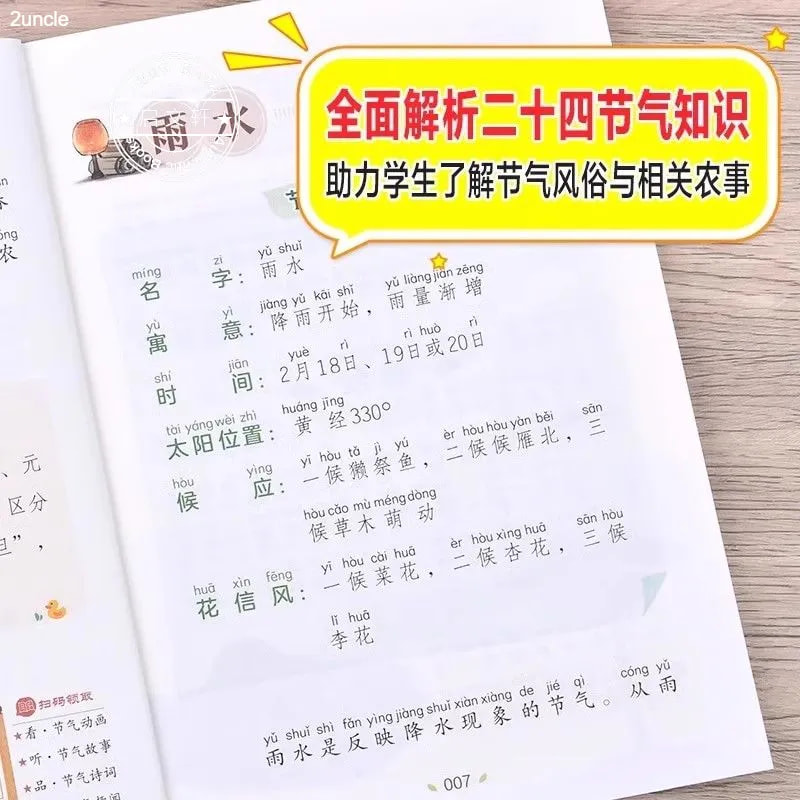 2uncle
全面解析二十四节气知识
助力学生了解节气风俗与相关农事
雨水
节
míng zì yǔ shuǐ
名字：雨水
yù yì jiàng yǔ kāi shǐ yǔ liàng jiàn zēng
寓意：降雨开始，雨量渐增
shí jiān yuè rì rì huò rì
时间：2月18日、19日或20日
tài yáng wèi zhì huáng jīng
太阳位置：黄经330°
hòu yìng yī hòu tǎ jì yú èr hòu hòu yàn běi sān
候应：一候獭祭鱼，二候候雁北，三
hòu cǎo mù méng dòng
候草木萌动
huā xìn fēng yī hòu cài huā èr hòu xìng huā sān hòu
花信风：一候菜花，二候杏花，三候
lǐ huā
李花
yǔ shuǐ shì fǎn yìng jiàng shuǐ xiàn xiàng de jié qì cóng yǔ
雨水是反映降水现象的节气。从雨
007
农
、元
区分
旦”，
扫码领取
★看·节气动画
★听·节气故事
★品·节气诗词